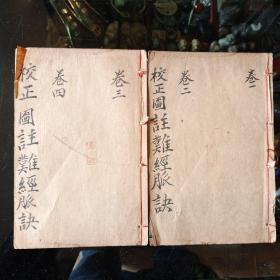 卷一
卷二
校正圖註難經脈訣
卷三
卷四
校正圖註難經脈訣